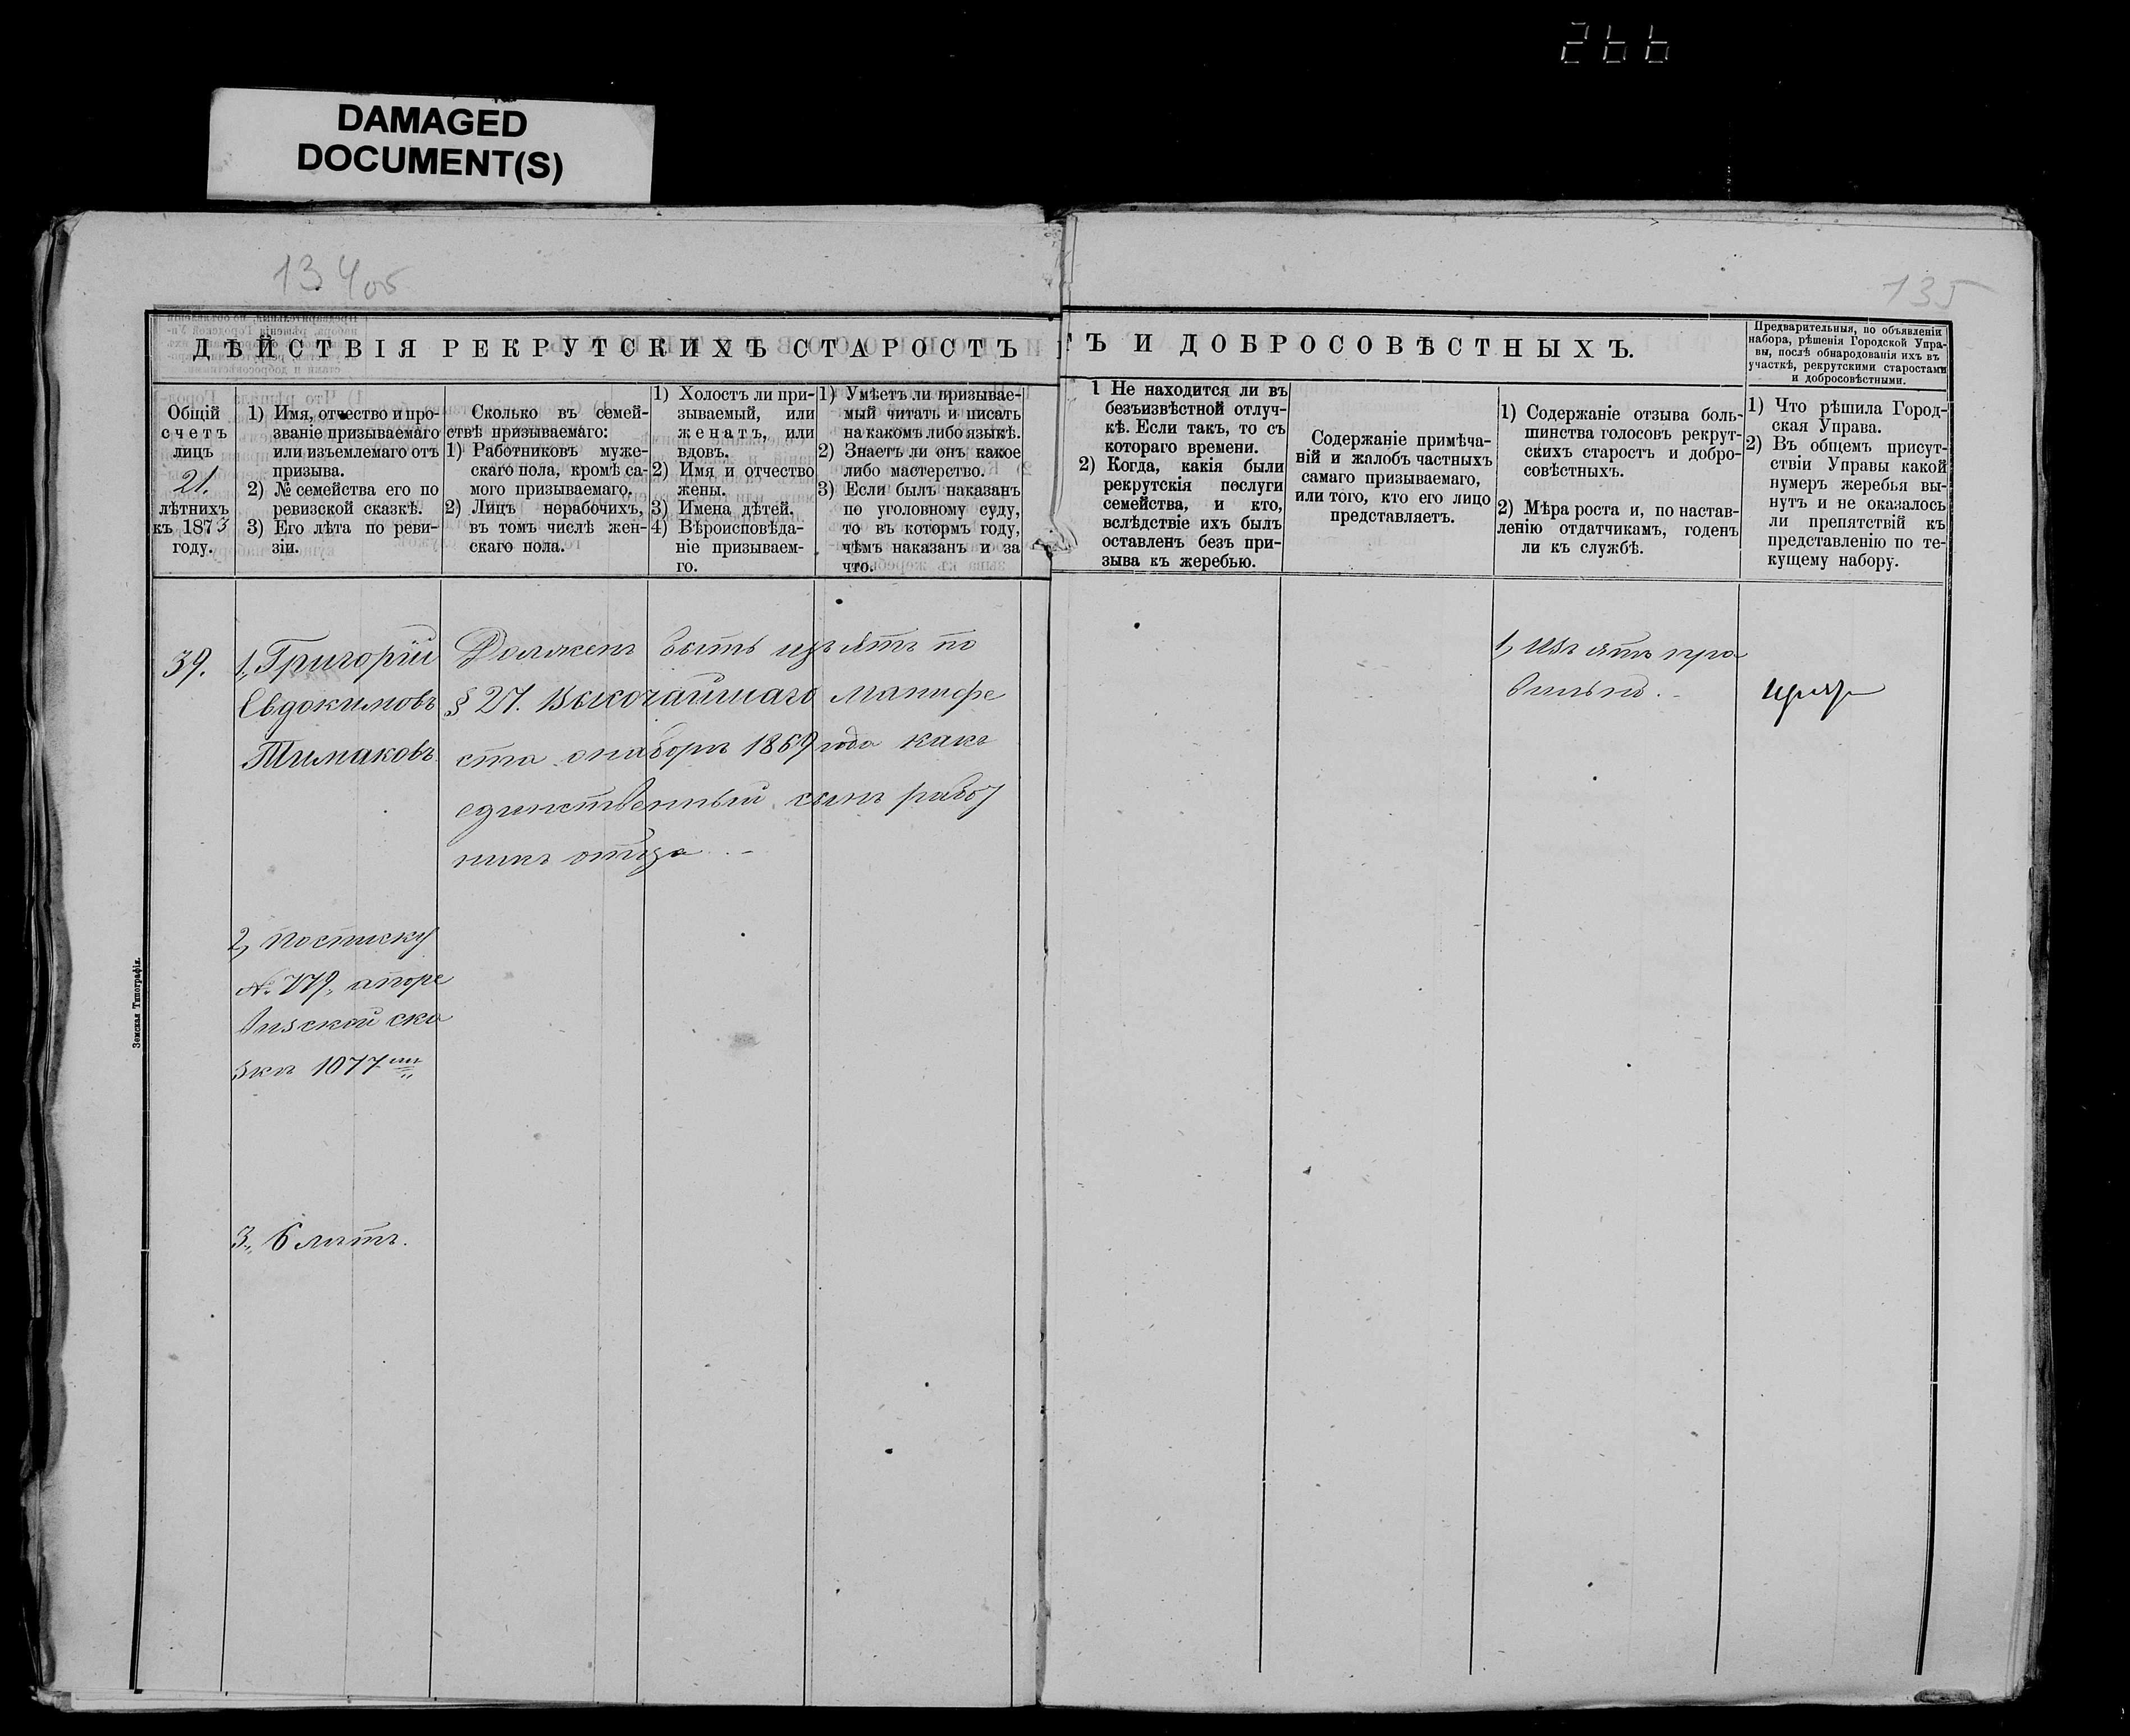 266
DAMAGED
DOCUMENT(S)
134об
135
ДѢЙСТВІЯ РЕКРУТСКИХЪ СТАРОСТЪ
Ъ И ДОБРОСОВѢСТНЫХЪ.
Предварительныя, по объявленіи
набора, рѣшенія Городской Упра-
вы, послѣ обнародованія ихъ въ
участкѣ, рекрутскими старостами
и добросовѣстными.
Общій
счетъ
лицъ
21.
лѣтнихъ
къ 1873
году.
1) Имя, отчество и про-
званіе призываемаго
или изъемлемаго отъ
призыва.
2) № семейства его по
ревизской сказкѣ.
3) Его лѣта по реви-
зіи.
Сколько въ семей-
ствѣ призываемаго:
1) Работниковъ муже-
скаго пола, кромѣ са-
мого призываемаго.
2) Лицъ нерабочихъ,
въ томъ числѣ жен-
скаго пола.
1) Холостъ ли при-
зываемый, или
женатъ, или
вдовъ.
2) Имя и отчество
жены.
3) Имена дѣтей.
4) Вѣроисповѣда-
ніе призываем-
го.
1) Умѣетъ ли призывае-
мый читать и писать
на какомъ либо языкѣ.
2) Знаетъ ли онъ какое
либо мастерство.
3) Если былъ наказанъ
по уголовному суду,
то въ котормъ году,
чѣмъ наказанъ и за
что.
1 Не находится ли въ
безъизвѣстной отлуч-
кѣ. Если такъ, то съ
котораго времени.
2) Когда, какія были
рекрутскія послуги
семейства, и кто,
вслѣдствіе ихъ былъ
оставленъ безъ при-
зыва къ жеребью.
Содержаніе примѣча-
ній и жалобъ частныхъ
самаго призываемаго,
или того, кто его лицо
представляетъ.
1) Содержаніе отзыва боль-
шинства голосовъ рекрут-
скихъ старостъ и добро-
совѣстныхъ.
2) Мѣра роста и, по настав-
ленію отдатчикамъ, годенъ
ли къ службѣ.
1) Что рѣшила Город-
ская Управа.
2) Въ общемъ присут-
ствіи Управы какой
нумеръ жеребья вы-
нутъ и не оказалось
ли препятствій къ
представленію по те-
кущему набору.
39.
1, Григорій
Евдокимовъ
Тимаковъ
Долженъ быть изъятъ по
§ 27. Высочайшаго манифе
ста о наборѣ 1869 года какъ
единственный сынъ работ
никъ отца. –
1, Изъятъ пра
вильно. –
2, по списку
№ 779, а по ре
визской ска
зкѣ 1077
3, 6 лѣтъ.
Земская Типографія.